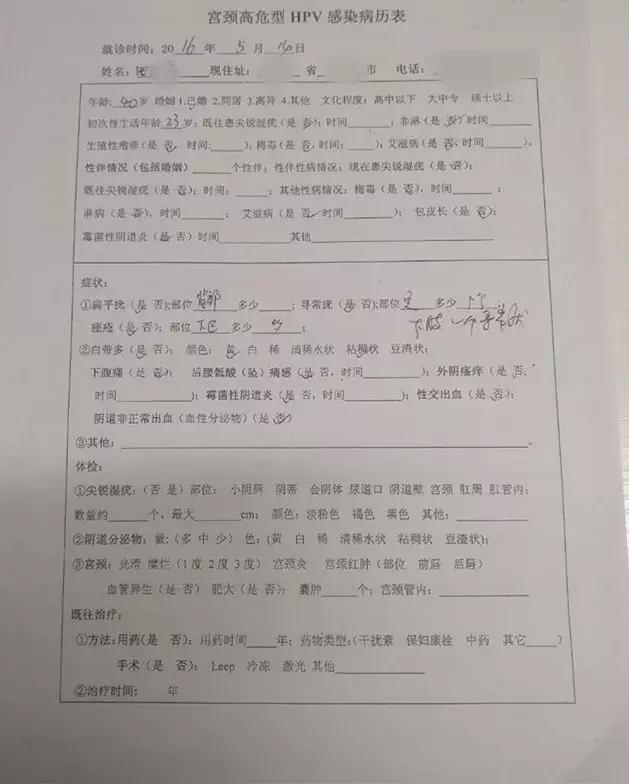 宫颈高危型 HPV 感染病历表
就诊时间：2016年 5月 30日
姓名：现住址： 省 市 电话：
年龄：40岁 婚姻 1.已婚 2.同居 3.离异 4.其他 文化程度：高中以下 大中专 硕士以上
初次性生活年龄 23 岁；既往患尖锐湿疣（是 否）；时间______；非淋（是 否）时间______
生殖性疱疹（是 否，时间：____）；梅毒（是 否，时间：____）；艾滋病（是 否，时间______）。
性伴情况（包括婚姻）______个性伴；性伴性病情况：现在患尖锐湿疣（是 否）；
既往尖锐湿疣（是 否）；时间：____；其他性病情况：梅毒（是 否），时间______；
淋病（是 否），时间______； 艾滋病（是 否，时间______）； 包皮长（是 否）；
霉菌性阴道炎（是 否）时间__________其他______________________
症状：
①扁平疣（是 否）；部位 背部 多少____；寻常疣（是 否）；部位 多少
痤疮（是 否）；部位 下巴 多少 ；
②白带多（是 否）； 颜色：黄 白 稀 清稀水状 粘稠状 豆渣状；
下腹痛（是 否）； 后腰骶酸（坠）痛感（是 否，时间________）；外阴瘙痒（是 否，
时间________）；霉菌性阴道炎（是 否，时间________）；性交出血（是 否）；
阴道非正常出血（血性分泌物）（是 否）
③其他：__________________________________________。
体检：
①尖锐湿疣：（否 是）部位： 小阴唇 阴蒂 会阴体 尿道口 阴道壁 宫颈 肛周 肛管内；
数量约______个，最大______cm； 颜色：淡粉色 褐色 黑色 其他：__________
②阴道分泌物：量：（多 中 少） 色：（黄 白 稀 清稀水状 粘稠状 豆渣状）；
③宫颈：光滑 糜烂（1度 2度 3度） 宫颈炎 宫颈红肿（部位 前唇 后唇）
血管异生（是 否） 肥大（是 否）； 囊肿_____个；宫颈管内：______________
既往治疗：
①方法：用药（是 否）；用药时间____年；药物类型：（干扰素 保妇康栓 中药 其它____）
手术（是 否）； Leep 冷冻 激光 其他____________
②治疗时间： 年